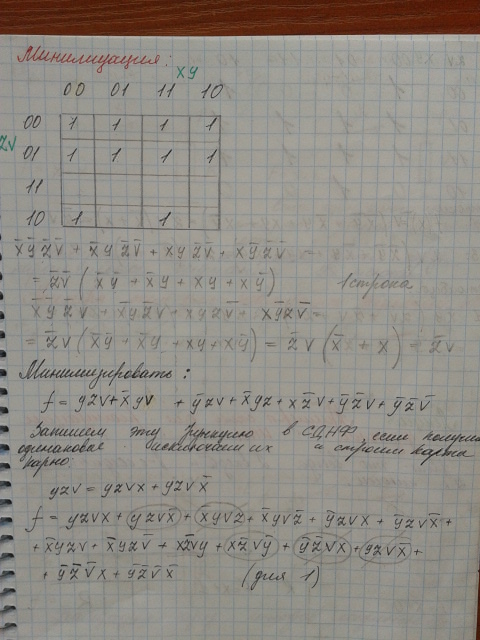 Минимизация:
xy
00 01 11 10
00 1 1 1 1
zv 01 1 1 1 1
11
10 1 1
x̄ȳz̄v̄ + x̄yz̄v̄ + xyz̄v̄ + xȳz̄v̄ =
= z̄v̄ (x̄ȳ + x̄y + xy + xȳ) 1 строка
x̄ȳz̄v + x̄yz̄v + xyz̄v + xȳz̄v =
= z̄v (x̄ȳ + x̄y + xy + xȳ) = z̄v (x̄ + x) = z̄v
Минимизировать:
f = yzv + x̄yv + ȳzv + x̄yz + xz̄v + ȳz̄v + ȳz̄v̄
Запишем эту функцию в СДНФ, если получим
одинаковые исключаем их и строим карта
парно:
yzv = yzvx + yzvx̄
f = yzvx + yzvx̄ + x̄yvz + x̄yvz̄ + ȳzvx + ȳzvx̄ +
+ x̄yzv + x̄yzv̄ + xz̄vy + xz̄vȳ + ȳz̄vx + ȳz̄vx̄ +
+ ȳz̄v̄x + ȳz̄v̄x̄ (для 1)